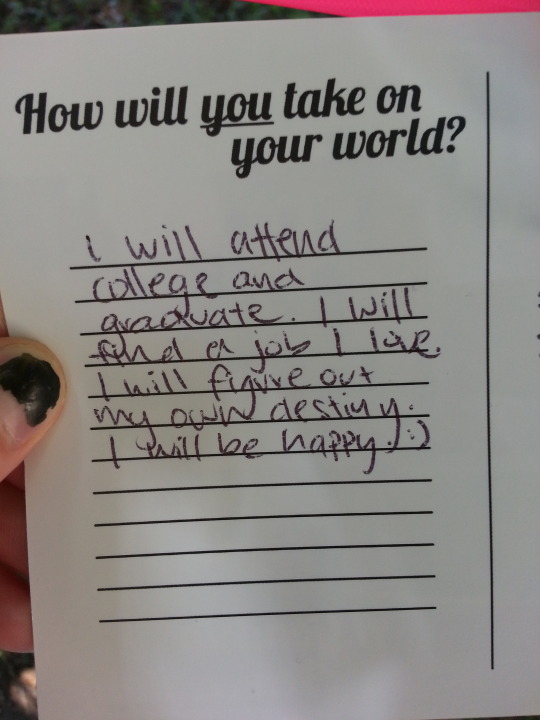 How will you take on
your world?
i will attend
college and
graduate. I will
find a job I love.
I will figure out
my own destiny.
I will be happy! :)